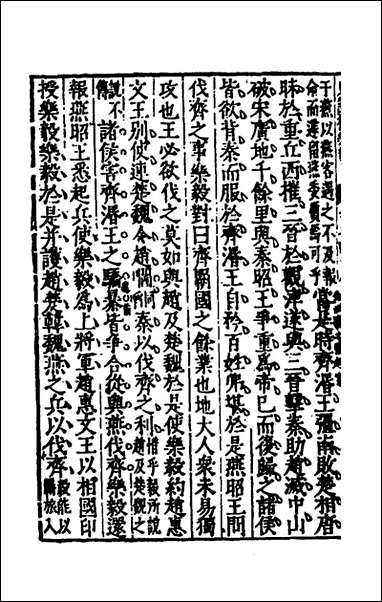 于燕以燕客遇之不及報
命而遲留燕委質焉可乎當是時齊湣王彊南敗楚相唐
昧於重丘西摧三晉於觀津遂與三晉擊秦助趙滅中山
破宋廣地千餘里與秦昭王爭重為帝已而復歸之諸侯
皆欲背秦而服於齊湣王自矜百姓弗堪於是燕昭王問
伐齊之事樂毅對曰齊霸國之餘業也地大人衆未易獨
攻也王必欲伐之莫如與趙及楚魏於是使樂毅約趙惠
文王别使連楚魏令趙嚪秦以伐齊之利
說不
諸侯害齊湣王之驕暴皆爭合從與燕伐齊樂毅還
報燕昭王悉起兵使樂毅為上將軍趙惠文王以相國印
授樂毅樂毅於是并護趙楚韓魏燕之兵以伐齊